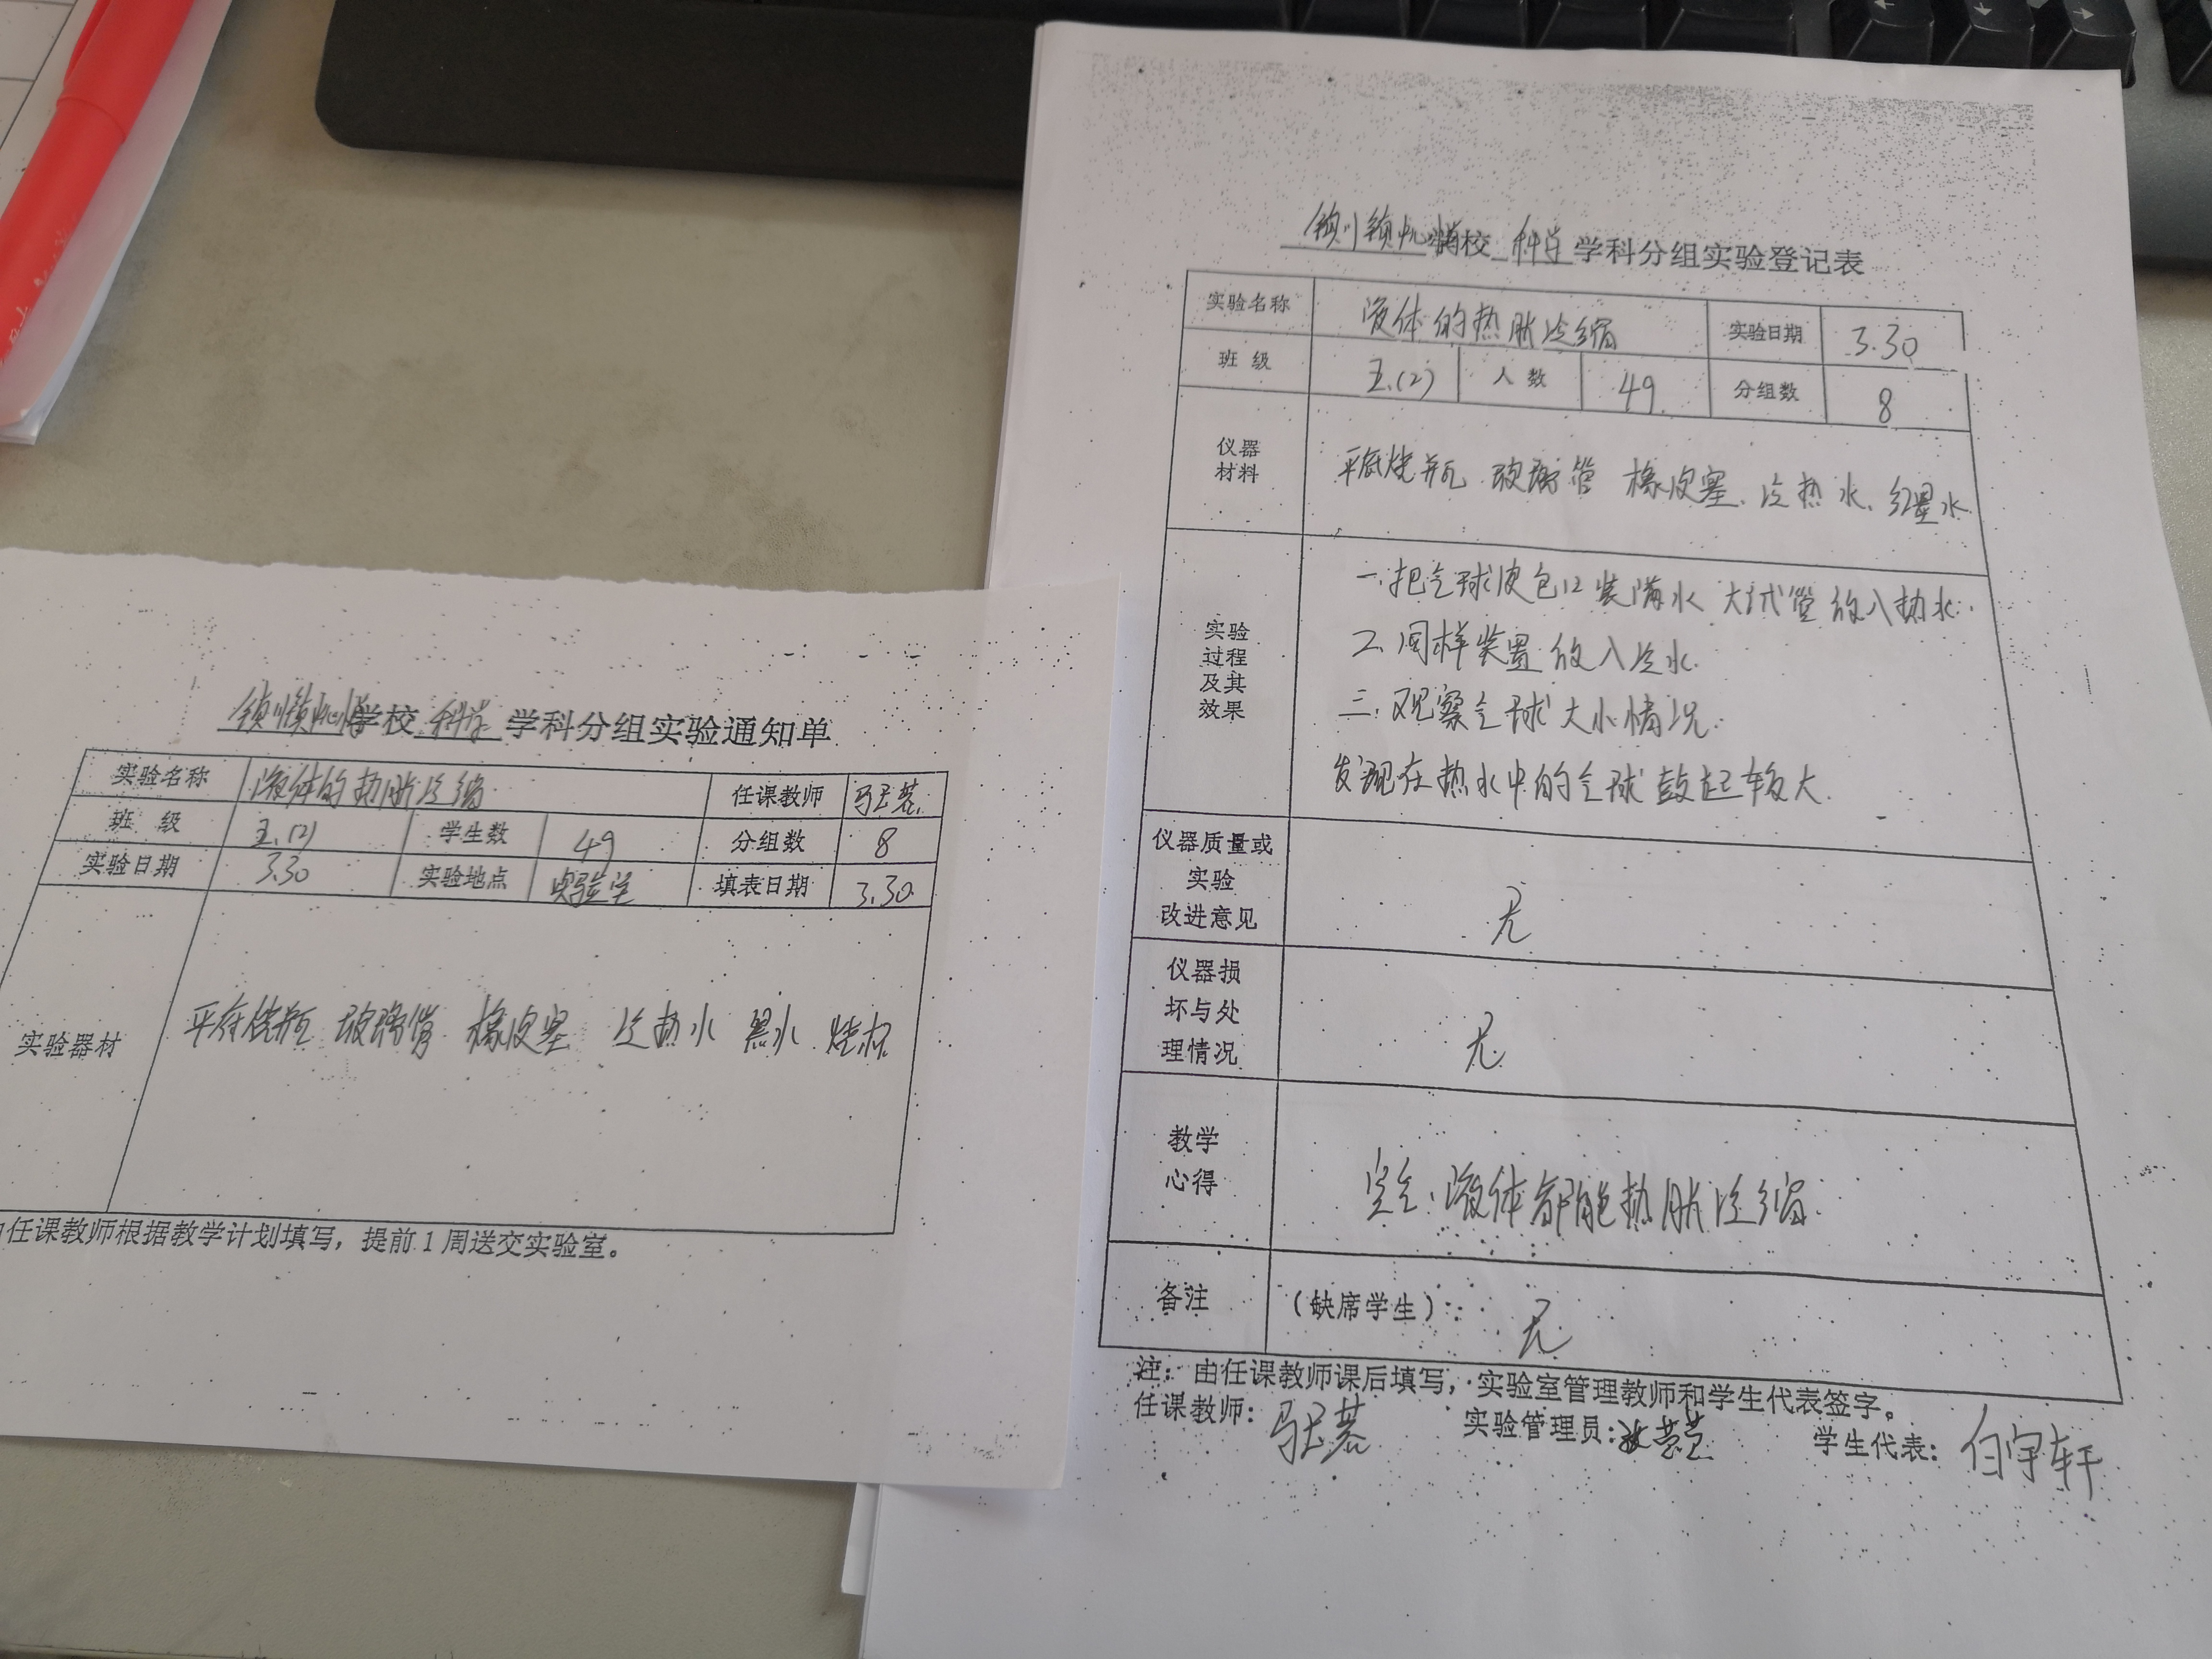 学校 科学 学科分组实验通知单
实验名称 液体的热胀冷缩 任课教师
班 级 五.(2) 学生数 49 分组数 8
实验日期 3.30 实验地点 实验室 填表日期 3.30
实验器材 平底烧瓶 玻璃管 橡皮塞 冷热水 墨水 烧杯
任课教师根据教学计划填写，提前1周送交实验室。
校 科学 学科分组实验登记表
实验名称 液体的热胀冷缩 实验日期 3.30
班 级 五.(2) 人 数 49. 分组数 8
仪器
材料
平底烧瓶 玻璃管 橡皮塞. 冷热水. 红墨水
实验
过程
及其
效果
一.把气球皮包口装满水 大试管 放入热水.
二.同样装置放入冷水.
三.观察气球大小情况.
发现在热水中的气球鼓起较大.
仪器质量或
实验
改进意见
无
仪器损
坏与处
理情况
无
教学
心得
空气.液体都能热胀冷缩.
备注 （缺席学生）: 无
注：由任课教师课后填写，实验室管理教师和学生代表签字。
任课教师: 实验管理员: 学生代表: 白宇轩